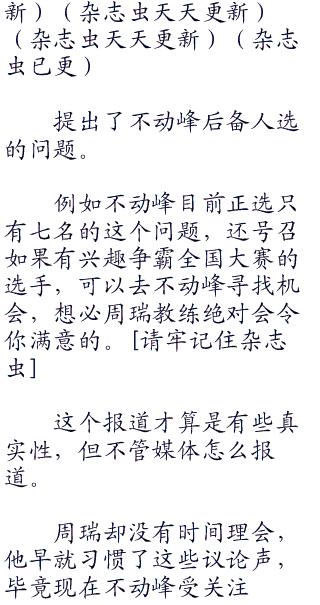 新）（杂志虫天天更新）
（杂志虫天天更新）（杂志
虫已更）
提出了不动峰后备人选
的问题。
例如不动峰目前正选只
有七名的这个问题，还号召
如果有兴趣争霸全国大赛的
选手，可以去不动峰寻找机
会，想必周瑞教练绝对会令
你满意的。[请牢记住杂志
虫]
这个报道才算是有些真
实性，但不管媒体怎么报
道。
周瑞却没有时间理会，
他早就习惯了这些议论声，
毕竟现在不动峰受关注